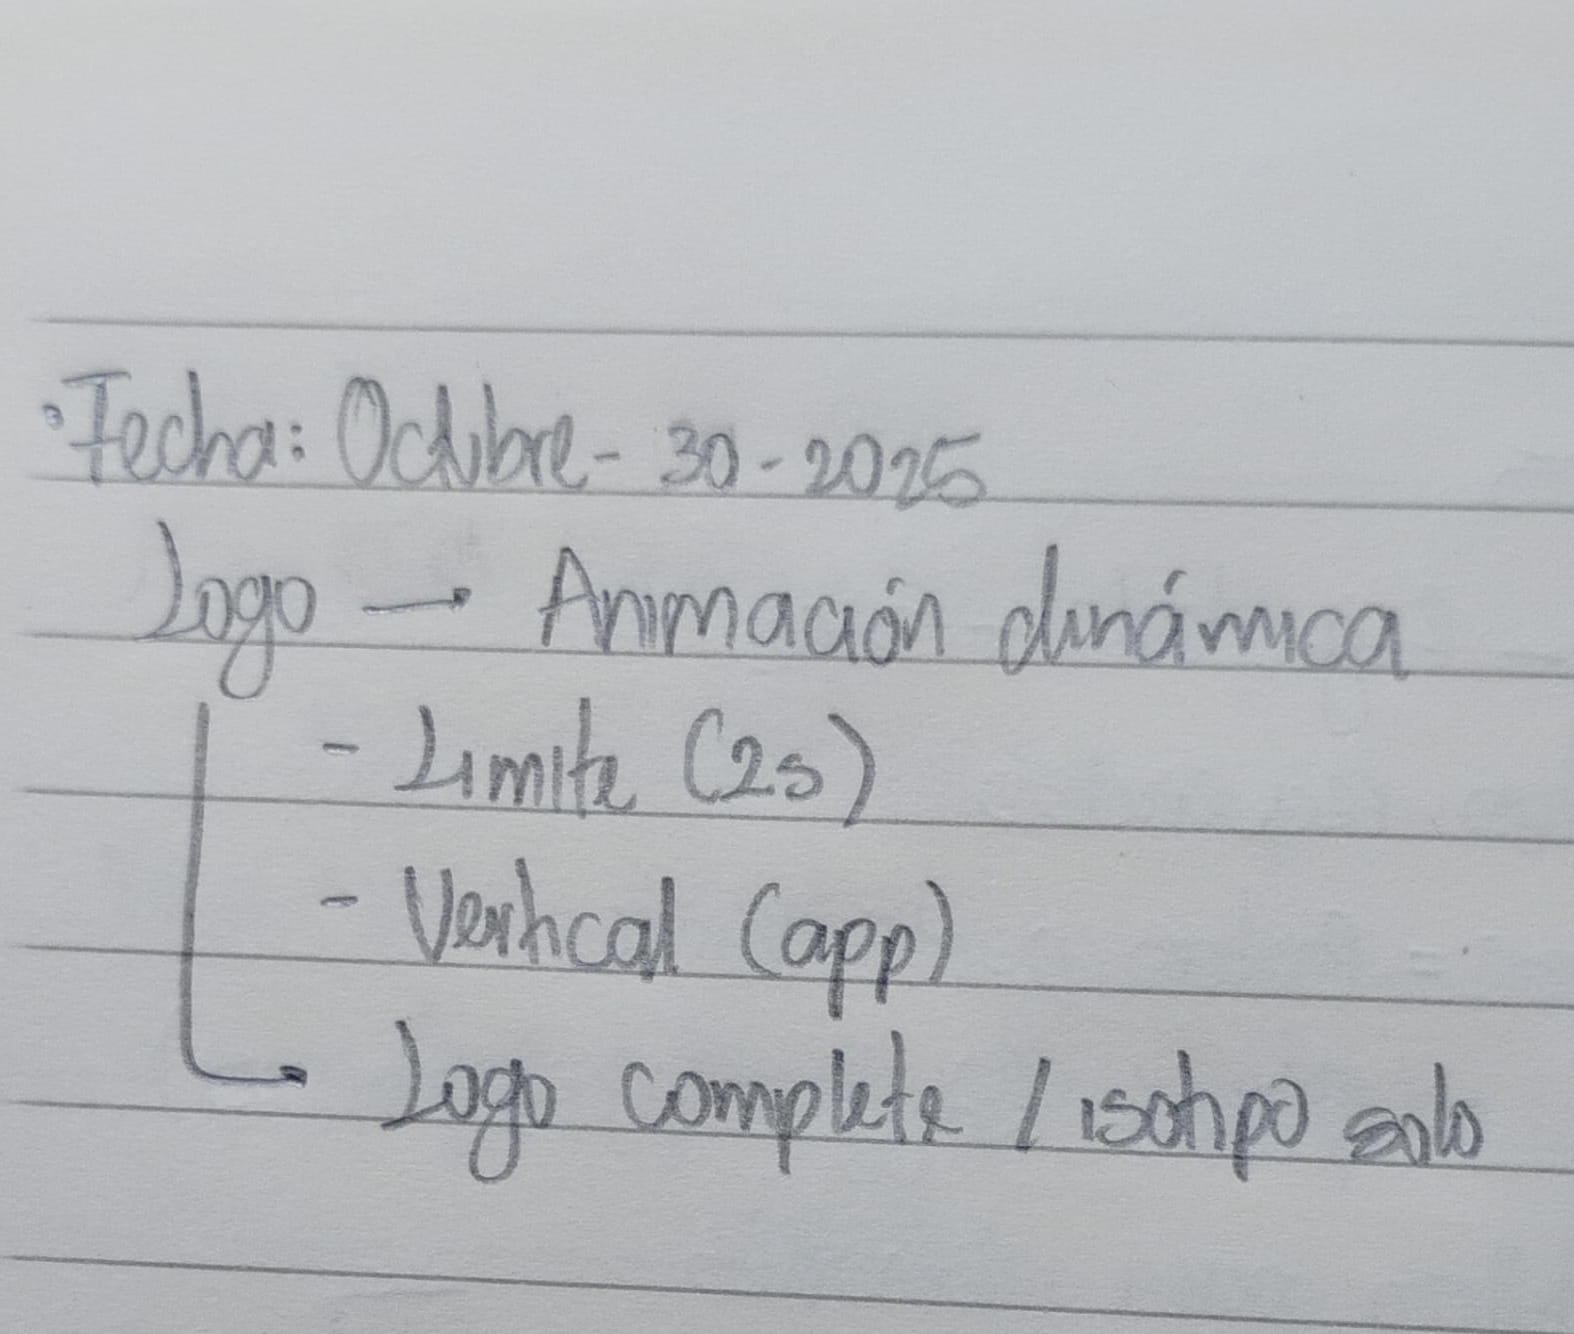 ·Fecha: Octubre - 30 - 2025
Logo → Animación dinámica
- Limite (2s)
- Vertical (app)
→ Logo complete / isotipo solo